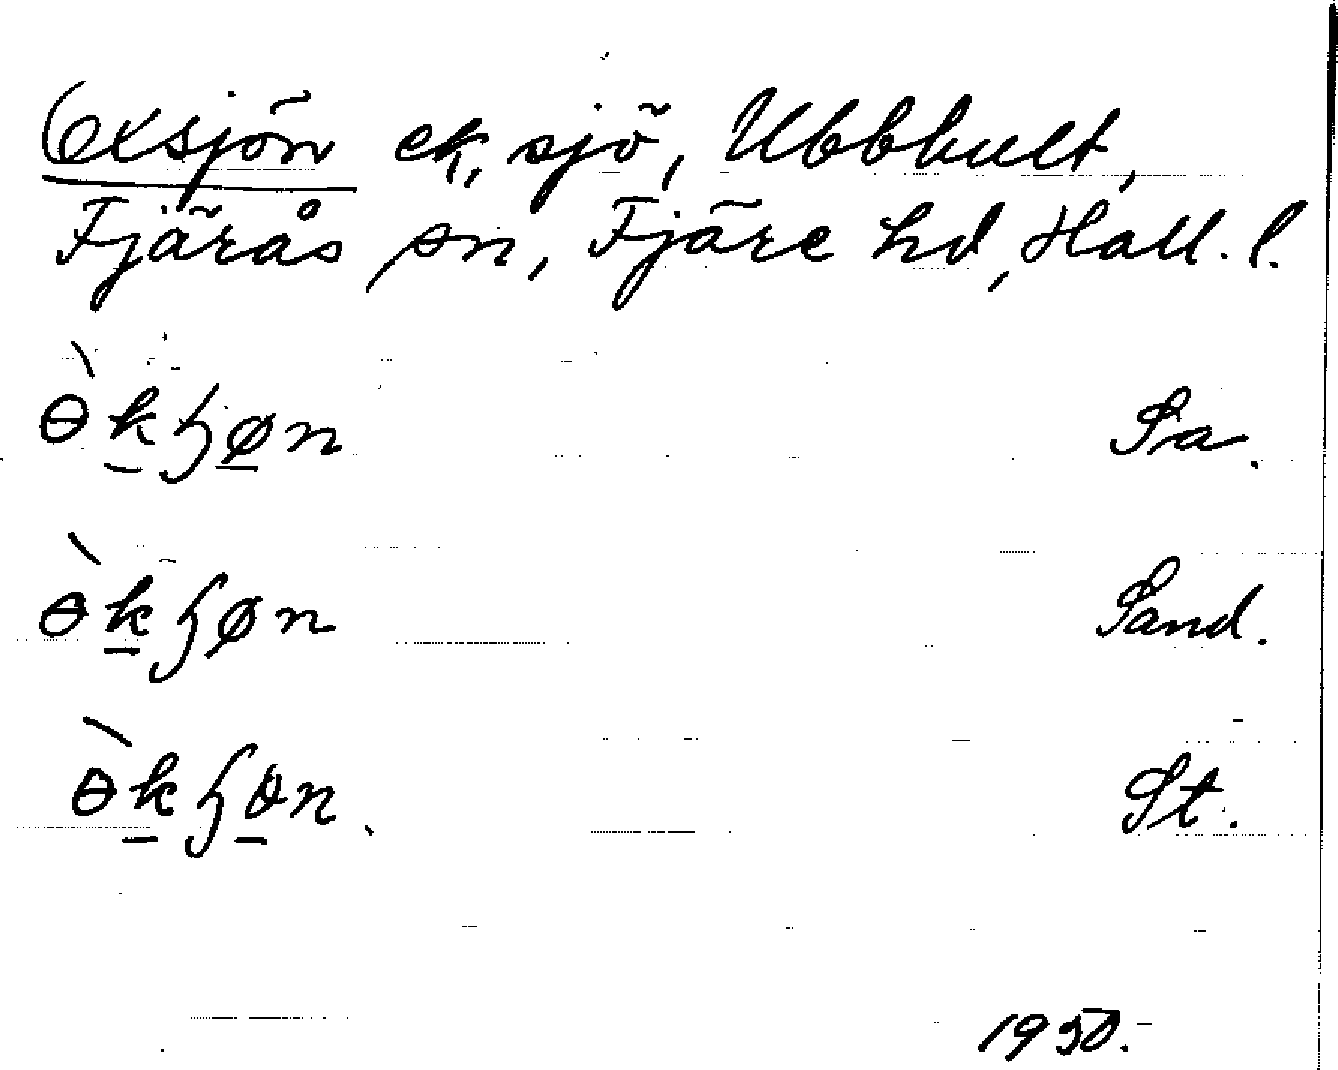 Oxsjön ek, sjö, Ubbhult,
Fjärås sn, Fjäre hd, Hall. l.
ɵ̀kɧøn Sa.
ɵ̀kɧøn Sand.
ɵ̀kɧɵn. St.
1950.